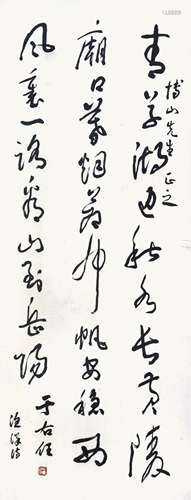 博山先生正之
青草湖邊秋水長黃陵
廟口暮烟蒼布帆安穩西
風裏一路看山到岳陽
于右任
漁洋詩